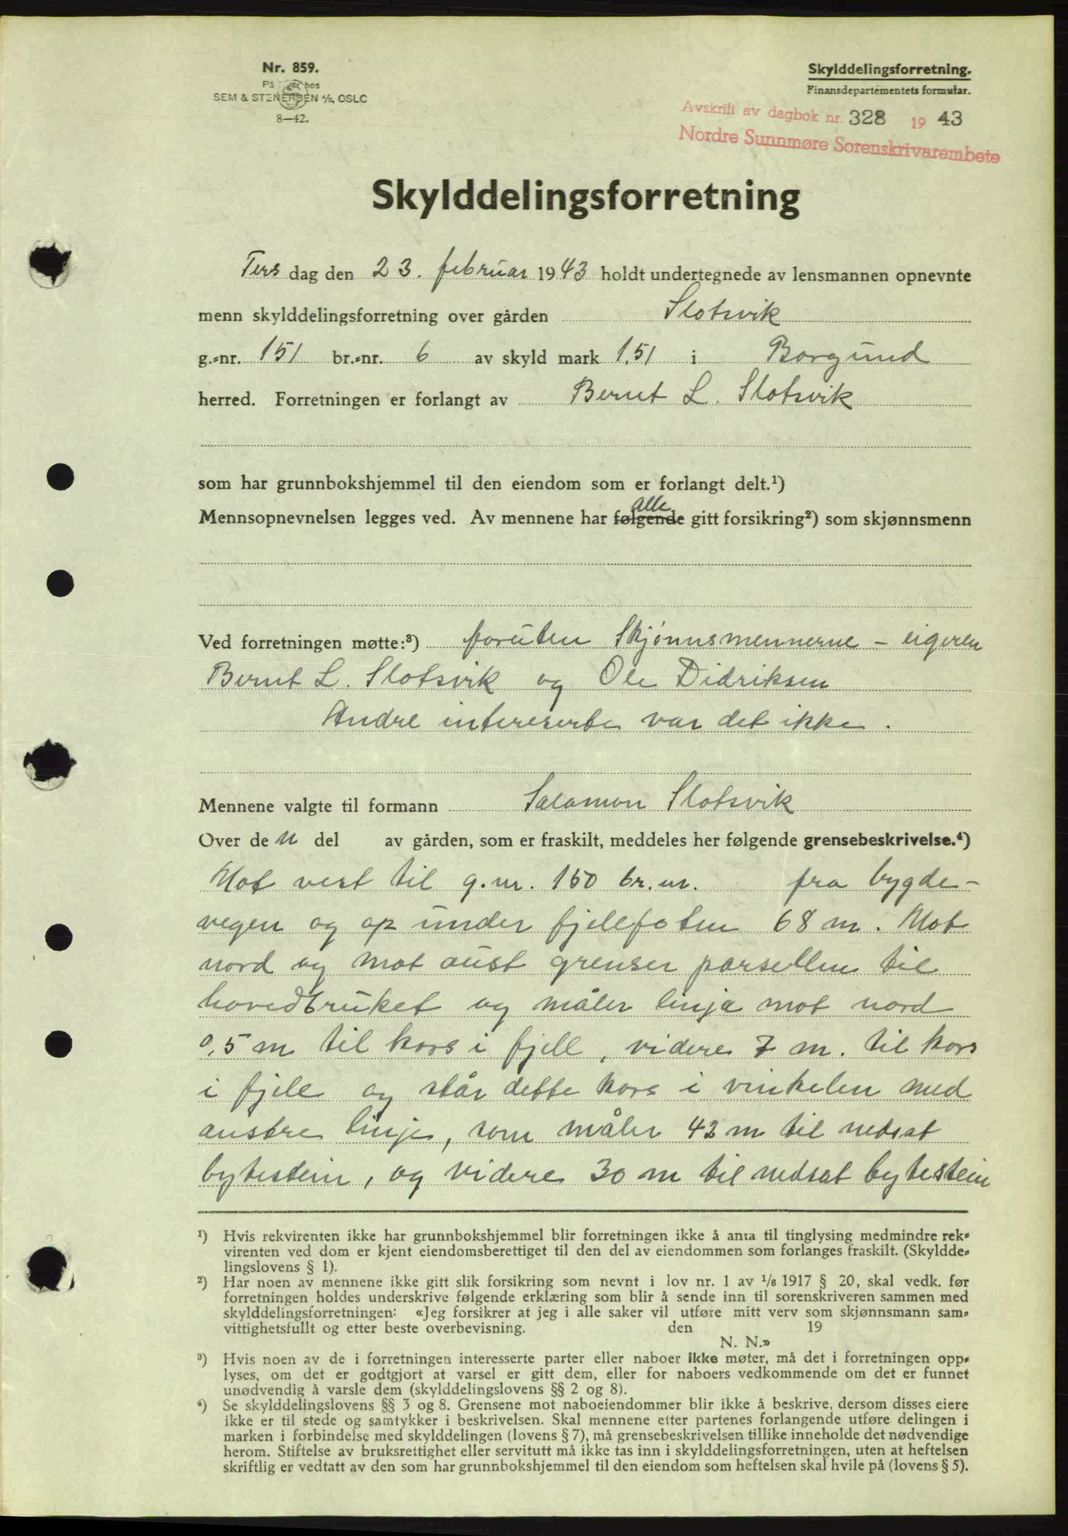 Nr. 859.
SEM & STENERSEN A/S, OSLO
8—42.
Skylddelingsforretning.
Finansdepartementets formular.
Avskrift av dagbok nr. 328 1943
Nordre Sunnmøre Sorenskrivarembete
Skylddelingsforretning
Tirsdag den 23. februar 1943 holdt undertegnede av lensmannen opnevnte
menn skylddelingsforretning over gården Slotsvik
g.-nr. 151 br.-nr. 6 av skyld mark 1,51 i Borgund
herred. Forretningen er forlangt av Bernt L. Slotsvik
som har grunnbokshjemmel til den eiendom som er forlangt delt.¹)
alle
Mennsopnevnelsen legges ved. Av mennene har følgende gitt forsikring²) som skjønnsmenn
Ved forretningen møtte:³) foruten Skjønnsmennerne – eigeren
Bernt L. Slotsvik og Ole Didriksen
Andre intereserte var det ikke.
Mennene valgte til formann Salamon Slotsvik
Over de n del av gården, som er fraskilt, meddeles her følgende grensebeskrivelse.⁴)
Mot vest til g.nr. 150 br.nr. fra bygde-
vegen og op under fjellfoten 68 m. Mot
nord og mot aust grenser parsellen til
hovedbruket og måler linja mot nord
0,5 m til kors i fjell, videre 7 m. til kors
i fjell og står dette kors i vinkelen med
austre linje, som måler 42 m til nedsat
bytestein, og videre 30 m til nedsat bytestein
¹) Hvis rekvirenten ikke har grunnbokshjemmel blir forretningen ikke å anta til tinglysing medmindre rek-
virenten ved dom er kjent eiendomsberettiget til den del av eiendommen som forlanges fraskilt. (Skyldde-
lingslovens § 1).
²) Har noen av mennene ikke gitt slik forsikring som nevnt i lov nr. 1 av ¹/₈ 1917 § 20, skal vedk. før
forretningen holdes underskrive følgende erklæring som blir å sende inn til sorenskriveren sammen med
skylddelingsforretningen: «Jeg forsikrer at jeg i alle saker vil utføre mitt verv som skjønnsmann sam-
vittighetsfullt og etter beste overbevisning. den 19
N. N.»
³) Hvis noen av de i forretningen interesserte parter eller naboer ikke møter, må det i forretningen opp-
lyses, om det er godtgjort at varsel er gitt dem, eller for naboers vedkommende om det er funnet
unødvendig å varsle dem (skylddelingslovens §§ 2 og 8).
⁴) Se skylddelingslovens §§ 3 og 8. Grensene mot naboeiendommer blir ikke å beskrive, dersom disses eiere
ikke er til stede og samtykker i beskrivelsen. Skal mennene etter partenes forlangende utføre delingen i
marken i forbindelse med skylddelingen (lovens § 7), må grensebeskrivelsen tillike inneholde det nødvendige
herom. Stiftelse av bruksrettighet eller servitutt må ikke tas inn i skylddelingsforretningen, uten at heftelsen
skriftlig er vedtatt av den som har grunnbokshjemmel til den eiendom som heftelsen skal hvile på (lovens § 5).